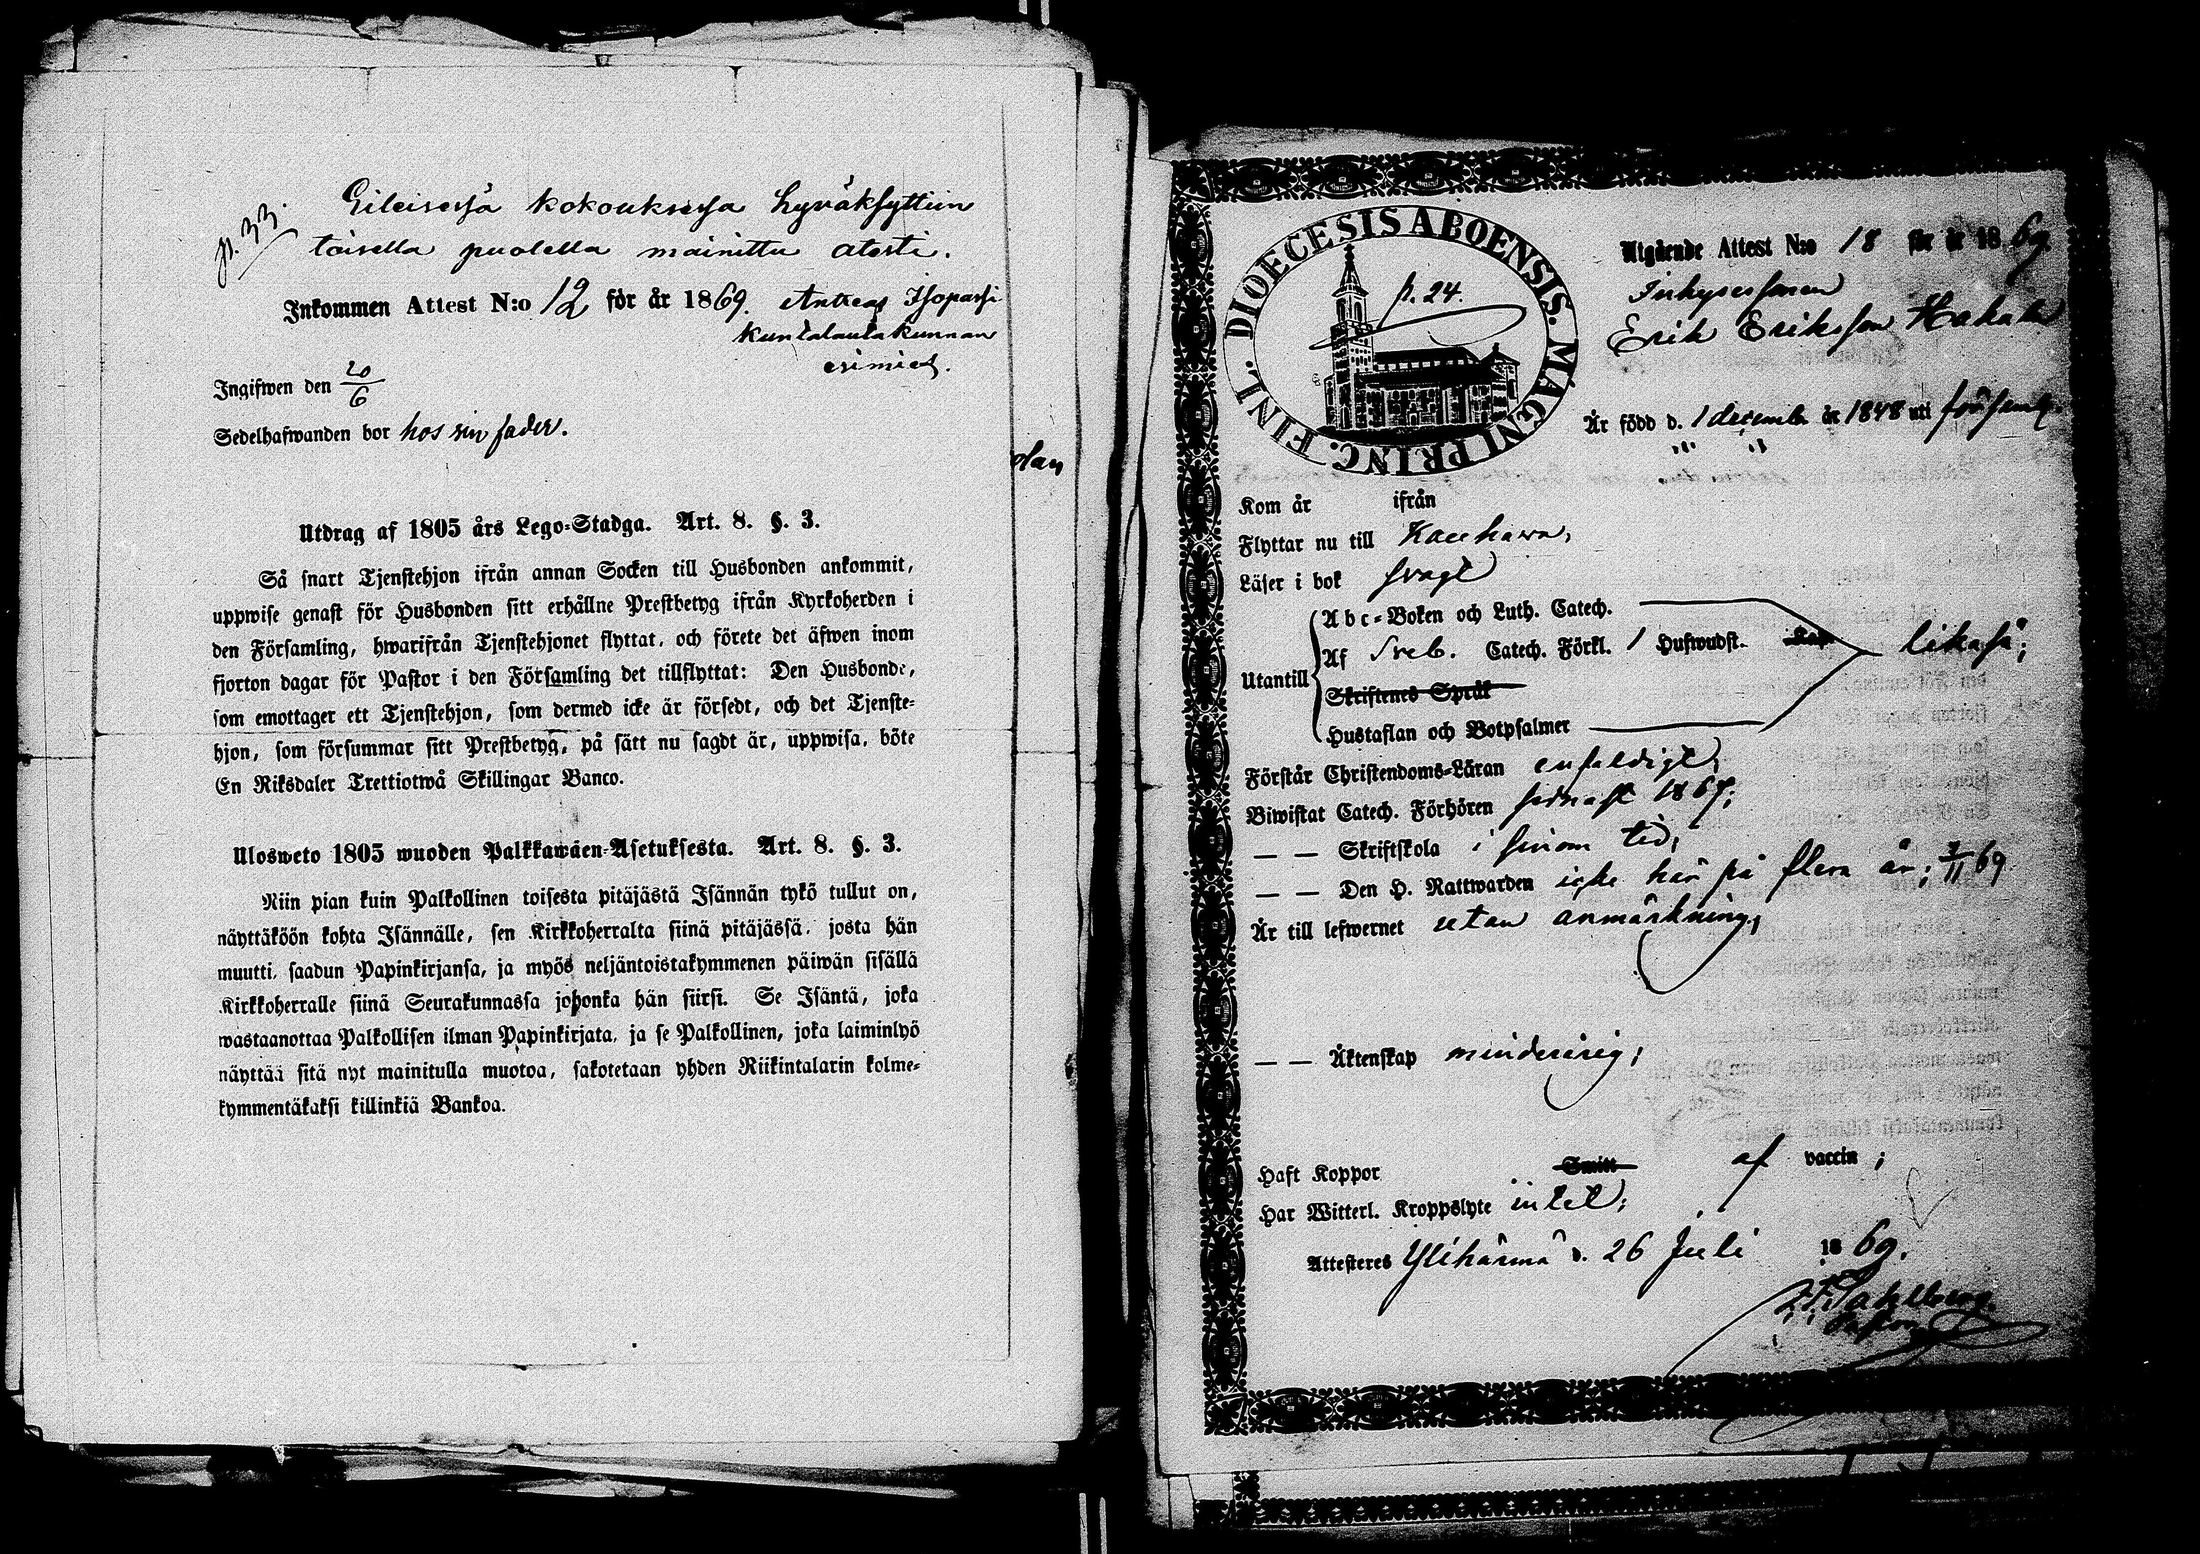 p. 33.
Eileisessä kokouksessa hyväksyttiin
toisella puolella mainittu atesti.
Inkommen Attest N:o 12 för år 1869. Antreas Isopassi
kuntalautakunnan
esimies.
Ingifwen den 20/6
Sedelhafwanden bor hos sin fader.
Utdrag af 1805 års Lego-Stadga. Art. 8. §. 3.
Så snart Tjenstehjon ifrån annan Socken till Husbonden ankommit,
uppwise genast för Husbonden sitt erhållne Prestbetyg ifrån Kyrkoherden i
den Församling, hwarifrån Tjenstehjonet flyttat, och förete det äfwen inom
fjorton dagar för Pastor i den Församling det tillflyttat: Den Husbonde,
som emottager ett Tjenstehjon, som dermed icke är försedt, och det Tjenste-
hjon, som försummar sitt Prestbetyg, på sätt nu sagdt är, uppwisa, böte
En Riksdaler Trettiotwå Skillingar Banco.
Ulosweto 1805 wuoden Palkkawäen-Asetuksesta. Art. 8. §. 3.
Niin pian kuin Palkollinen toisesta pitäjästä Isännän tykö tullut on,
näyttäköön kohta Isännälle, sen Kirkkoherralta siinä pitäjässä, josta hän
muutti, saadun Papinkirjansa, ja myös neljäntoistakymmenen päiwän sisällä
Kirkkoherralle siinä Seurakunnassa johonka hän siirsi. Se Isäntä, joka
wastaanottaa Palkollisen ilman Papinkirjata, ja se Palkollinen, joka laiminlyö
näyttää sitä nyt mainitulla muotoa, sakotetaan yhden Riikintalarin kolme-
kymmentäkaksi killinkiä Bankoa.
DIOECESIS ABOENSIS. MAGNI PRINC. FINL.
p. 24.
Utgående Attest N:o 18 för år 1869.
Inhysessonen
Erik Eriksson Hakala
Är född d. 1 decemb. år 1848 uti förseml.
Kom år ifrån
Flyttar nu till Kauhava,
Läser i bok svagt
Utantill
Abc-Boken och Luth. Catech.
Af Sveb. Catech. Förkl. 1 Hufwudst. likaså;
Skriftenes Språk
Hustaflan och Botpsalmer
Förstår Christendoms-Läran enfaldigt;
Biwistat Catech. Förhören sednast 1867;
— — Skriftskola i sinom tid;
— — Den H. Nattwarden icke här på flera år;
Är till lefwernet utan anmärkning;
— — Äktenskap minderårig;
Haft Koppor Smitt af vaccin;
Har Witterl. Kroppslyte intet;
Attesteres Ylihärmä d. 26 Juli 1869.